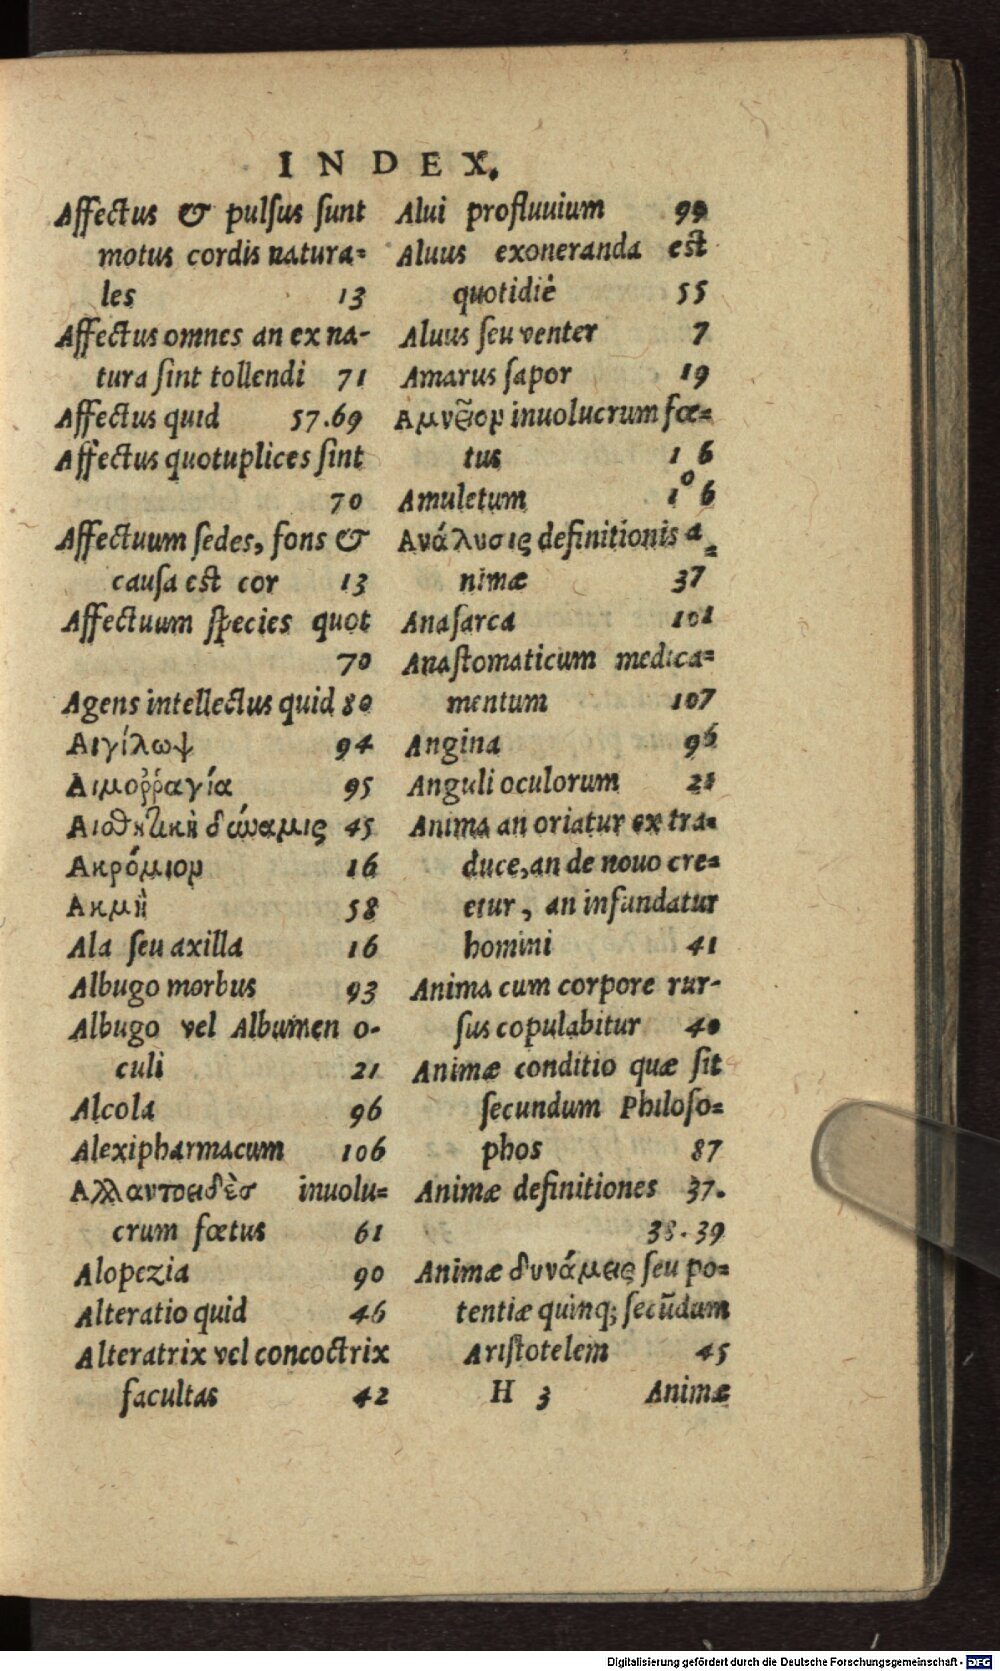 INDEX.
Affectus & pulſus ſunt
motus cordis natura=
les 13
Affectus omnes an ex na-
tura ſint tollendi 71
Affectus quid 57.69
Affectus quotuplices ſint
70
Affectuum ſedes, fons &
cauſa est cor 13
Affectuum ſpecies quot
70
Agens intellectus quid 80
Αιγίλωψ 94
Αιμοῤῥαγία 95
Αισθητικὴ δύναμις 45
Ακρόμιον 16
Ακμὴ 58
Ala ſeu axilla 16
Albugo morbus 93
Albugo vel Albumen o-
culi 21
Alcola 96
Alexipharmacum 106
Αλλαντοειδὲσ inuolu=
crum fœtus 61
Alopezia 90
Alteratio quid 46
Alteratrix vel concoctrix
facultas 42
Alui profluuium 99
Aluus exoneranda est
quotidiè 55
Aluus ſeu venter 7
Amarus ſapor 19
inuolucrum fœ=
tus 1 6
Amuletum 1 0 6
Ανάλυσις definitionis a=
nimæ 37
Anaſarca 101
Anaſtomaticum medica=
mentum 107
Angina 96
Anguli oculorum 21
Anima an oriatur ex tra=
duce, an de nouo cre=
etur, an infundatur
homini 41
Anima cum corpore rur-
ſus copulabitur 40
Animæ conditio quæ ſit
ſecundum Philoſo=
phos 87
Animæ definitiones 37.
38.39
Animæ δυνάμεις ſeu po=
tentiæ quinq; ſecūdum
Ariſtotelem 45
H 3 Animæ
Digitalisierung gefördert durch die Deutsche Forschungsgemeinschaft - DFG